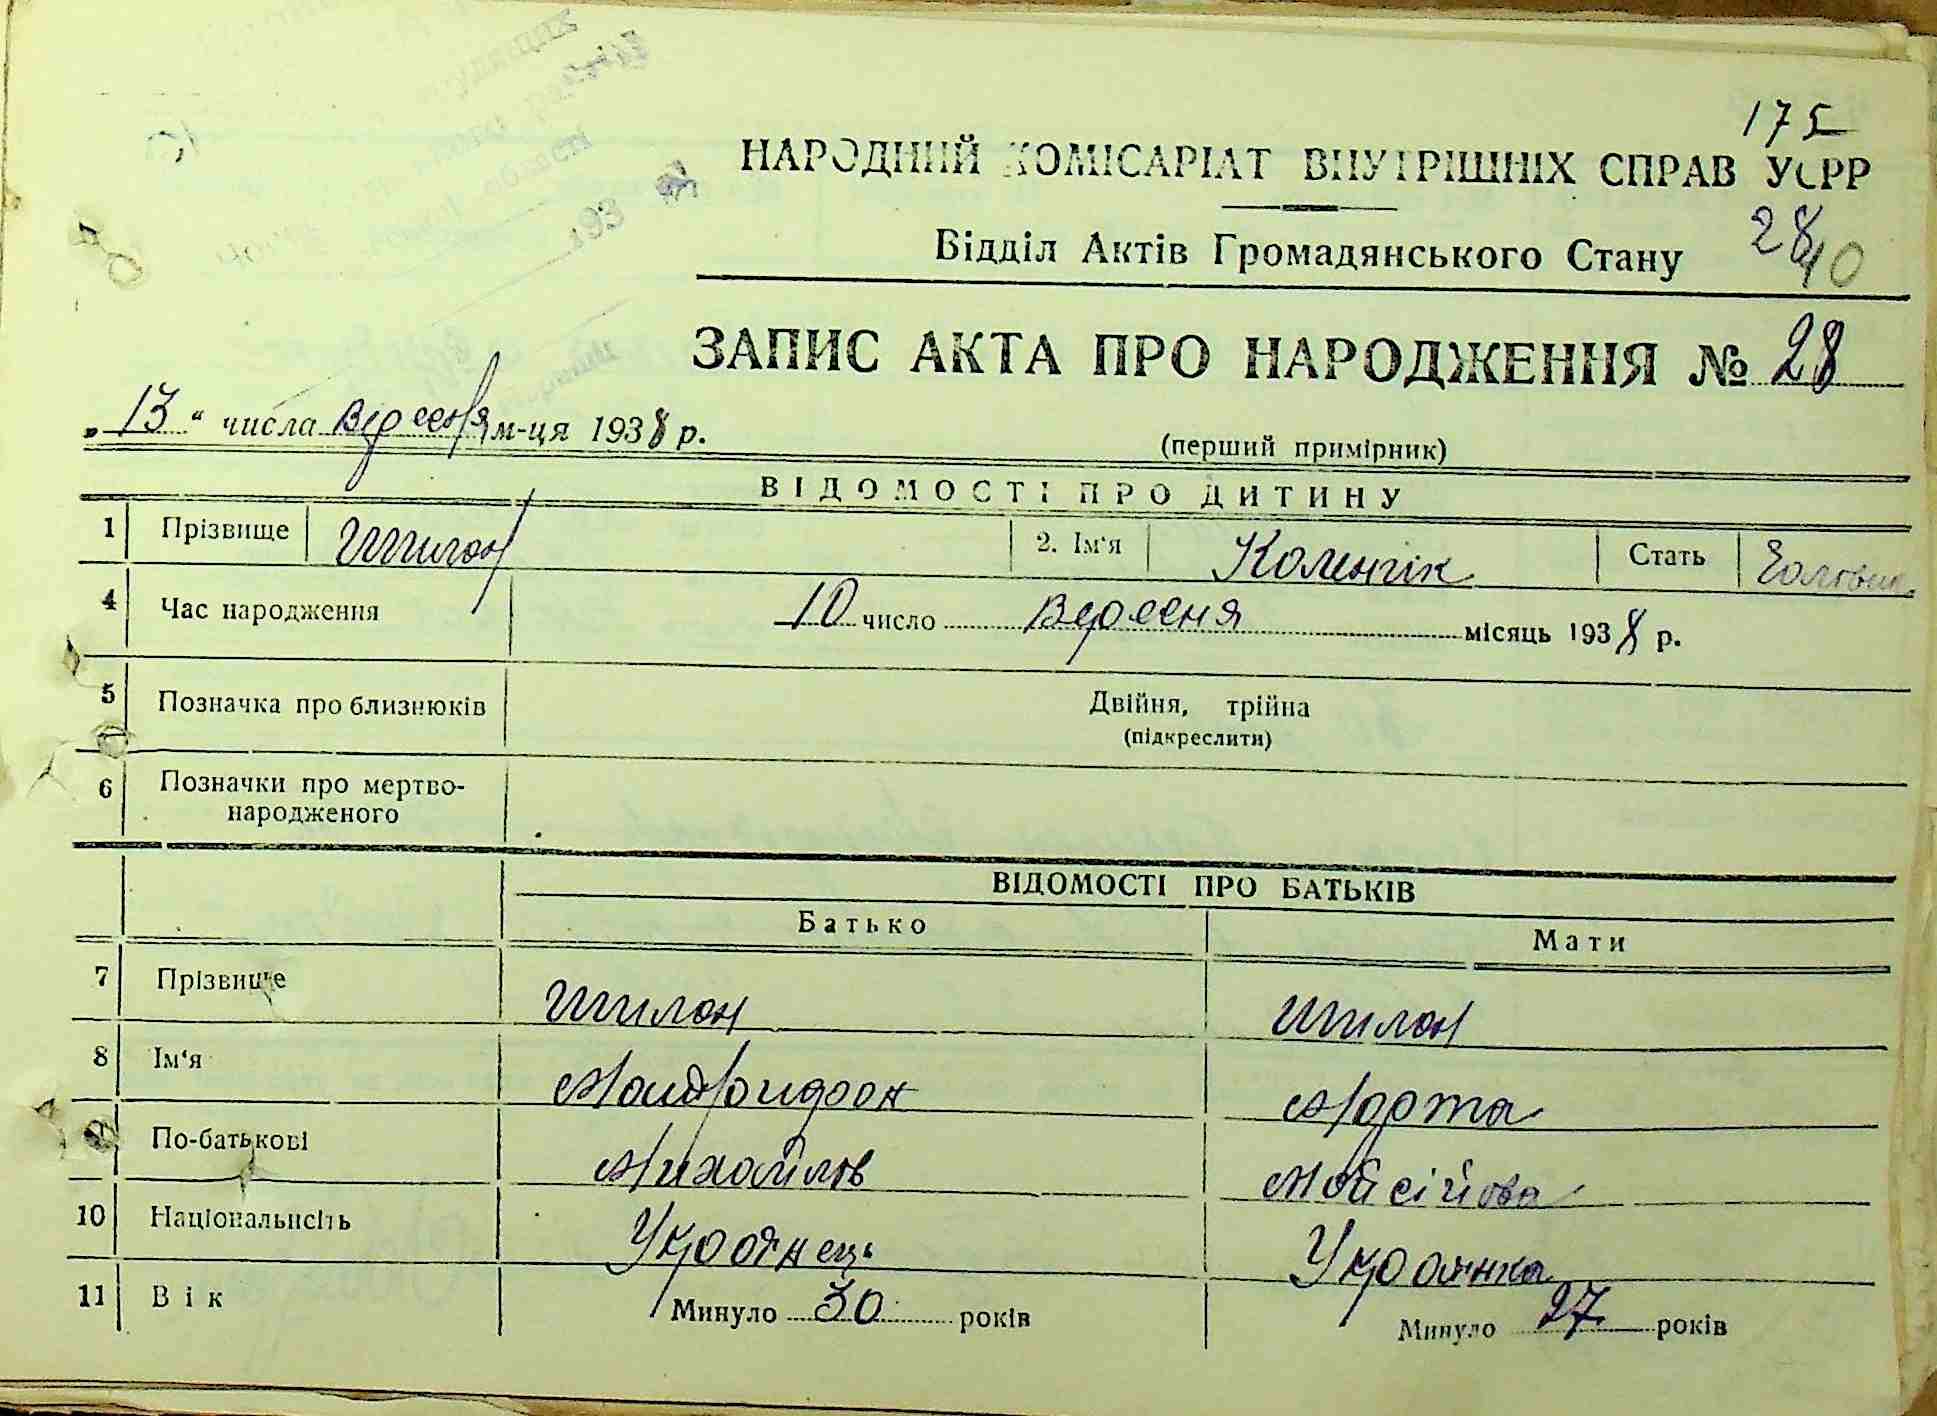 175
НАРОДНИЙ КОМІСАРІАТ ВНУТРІШНІХ СПРАВ УСРР
Відділ Актів Громадянського Стану
28
10
ЗАПИС АКТА ПРО НАРОДЖЕННЯ № 28
„13“ числа Вересня м-ця 1938 р.
(перший примірник)
ВІДОМОСТІ ПРО ДИТИНУ
1 Прізвище Шилан 2. Ім'я Стать
4 Час народження 10 число Вересня місяць 1938 р.
5 Позначка про близнюків Двійня, трійна
(підкреслити)
6 Позначки про мертво-
народженого
ВІДОМОСТІ ПРО БАТЬКІВ
Батько Мати
7 Прізвище Шилан Шилан
8 Ім'я Марта
9 По-батькові Михайлов Мойсійова
10 Національність Украянець Украянка
11 Вік Минуло 30 років Минуло 27 років
193